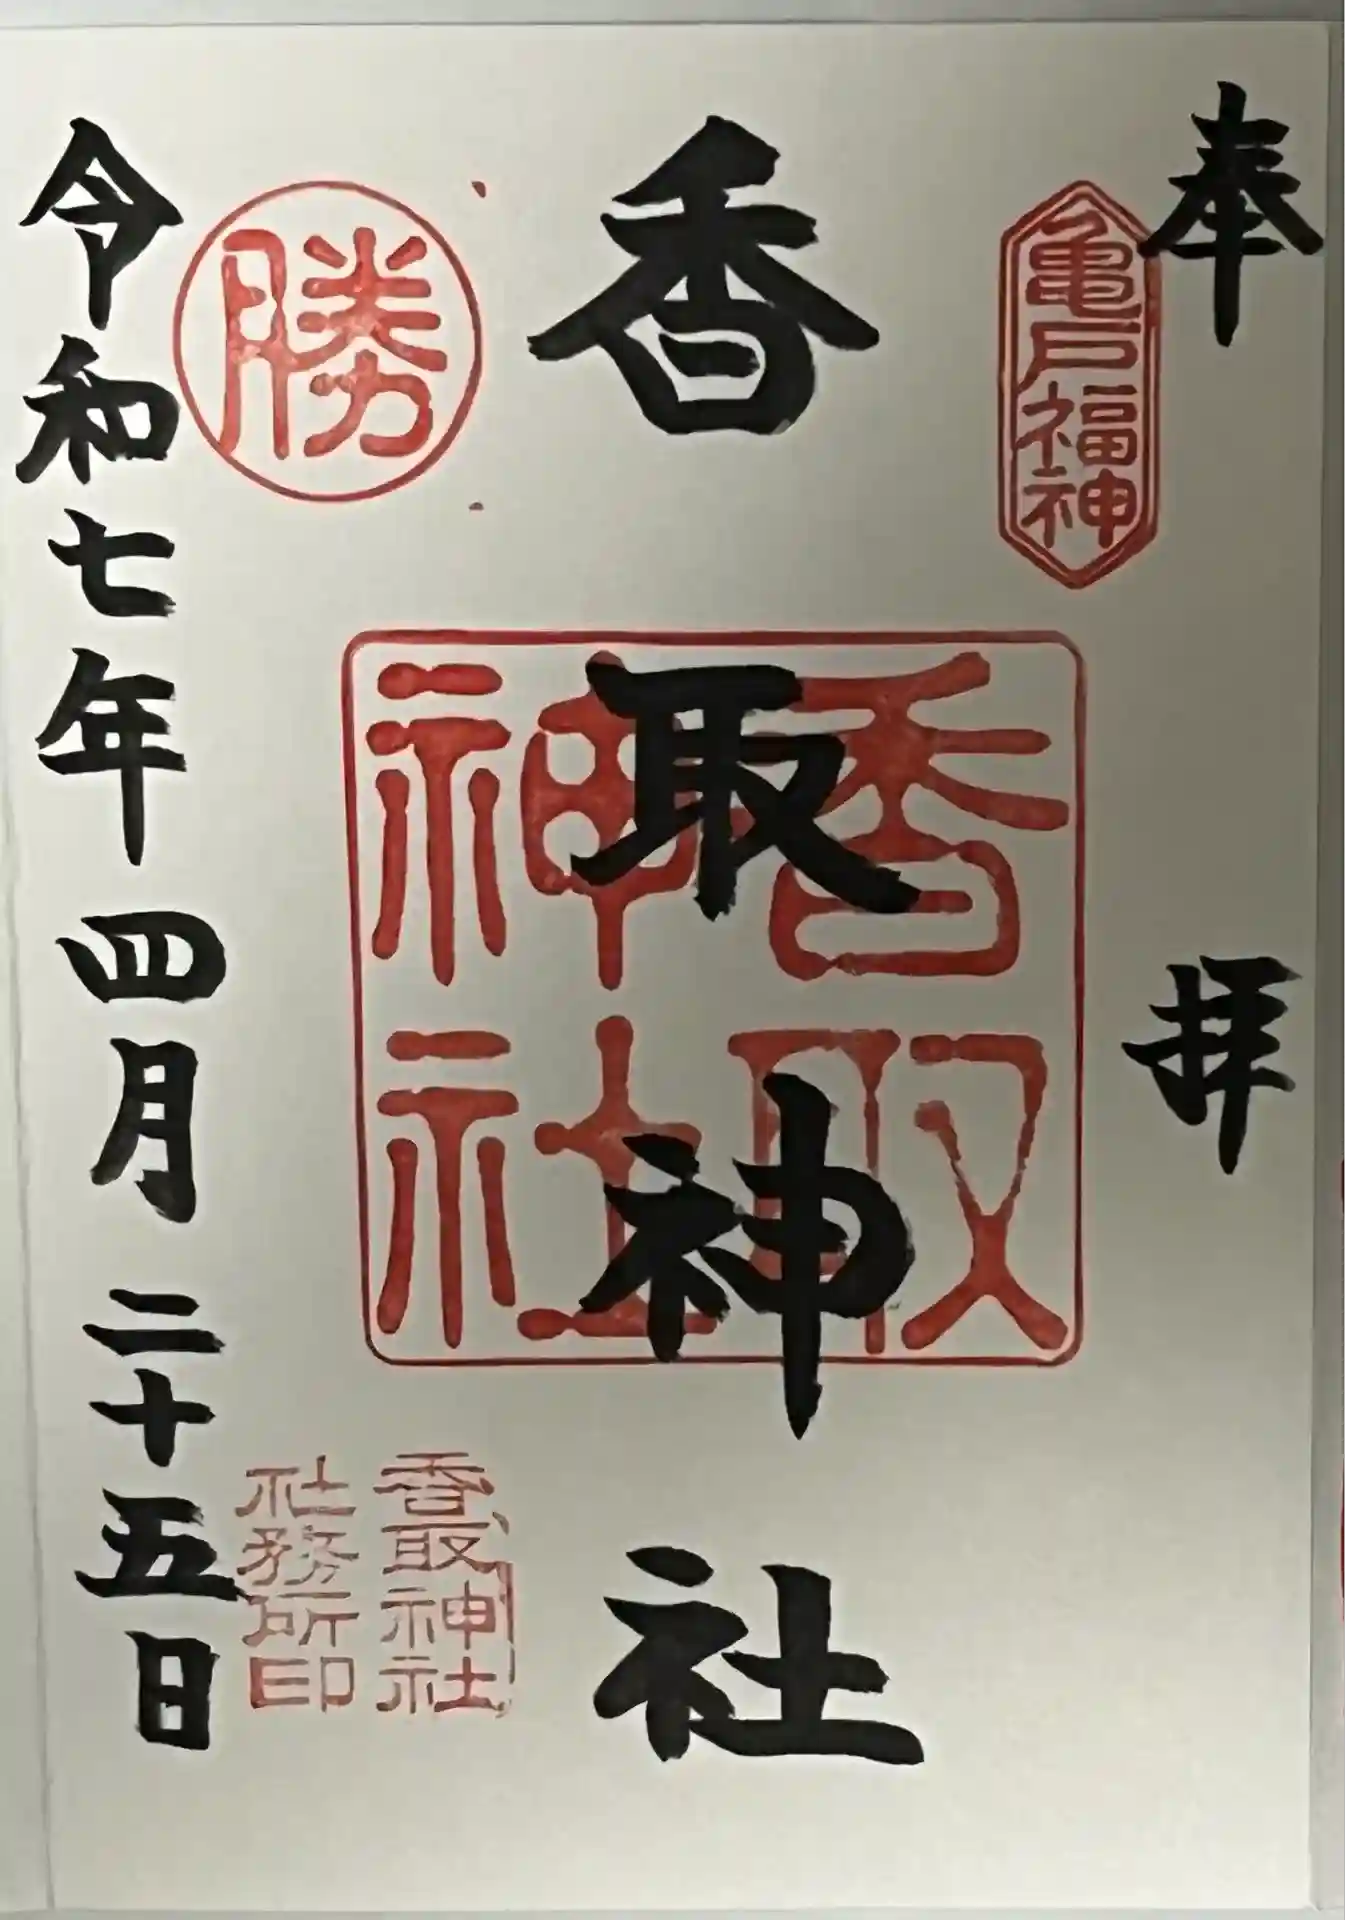 奉拝
亀戸福神
香取神社
香取
神社
勝
香取神社
社務所印
令和七年四月二十五日